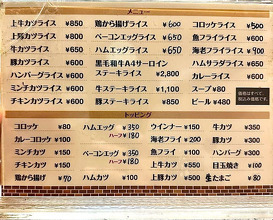 メニュー
上牛カツライス ¥850
上豚カツライス ¥800
牛カツライス ¥650
豚カツライス ¥600
ハンバーグライス ¥600
ミンチカツライス ¥600
チキンカツライス ¥600
鶏から揚げライス ¥600
ベーコンエッグライス ¥650
ハムエッグライス ¥650
黒毛和牛A4サーロイン
ステーキライス ¥2,800
牛ステーキライス ¥1,100
豚ステーキライス ¥850
コロッケライス ¥500
魚フライライス ¥600
海老フライライス ¥900
ハムサラダライス ¥600
カレーライス ¥600
スープ ¥80
ビール ¥480
価格はすべて、
税込み価格です。
トッピング
コロッケ ¥80
カレーコロッケ ¥100
ミンチカツ ¥150
チキンカツ ¥150
鶏から揚げ ¥70
ハムエッグ ¥350
ハーフ ¥180
ベーコンエッグ ¥350
ハーフ ¥180
ハムカツ ¥100
ウインナー ¥150
海老フライ ¥200
魚フライ ¥150
上牛カツ ¥550
上豚カツ ¥500
牛カツ ¥350
豚カツ ¥300
ハンバーグ ¥300
目玉焼き ¥100
生たまご ¥80